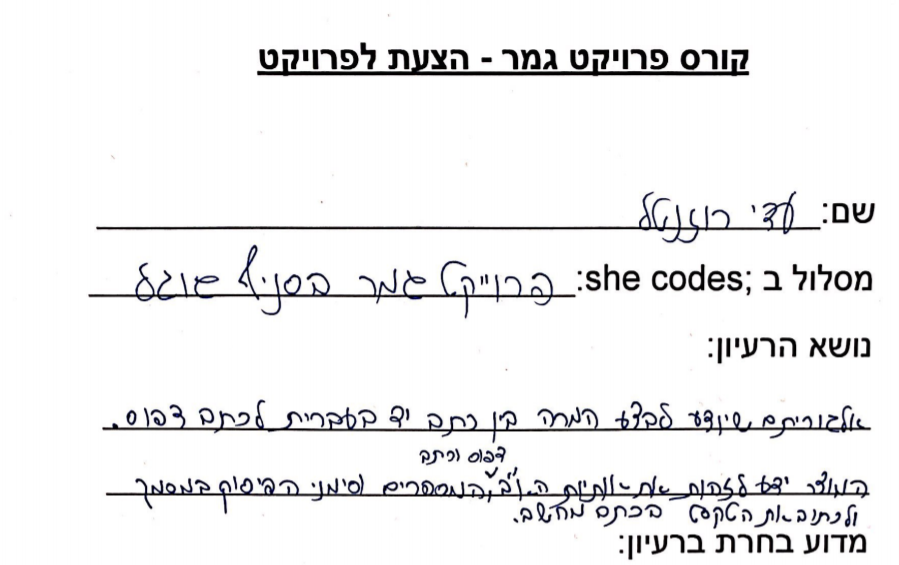 קורס פרויקט גמר - הצעת לפרויקט
שם: עדי רוזנטל
מסלול ב ;she codes: פרוייקט גמר בסניף גוגל
נושא הרעיון:
אלגוריתם שיודע לבצע המרה בין כתב יד בעברית לכתב דפוס.
דפוס וכתב
המוצר ידע לזהות את אותיות הא"ב, המספרים וסימני הפיסוק במסמך
ולכתוב את הטקסט בכתב מחשב.
מדוע בחרת ברעיון: